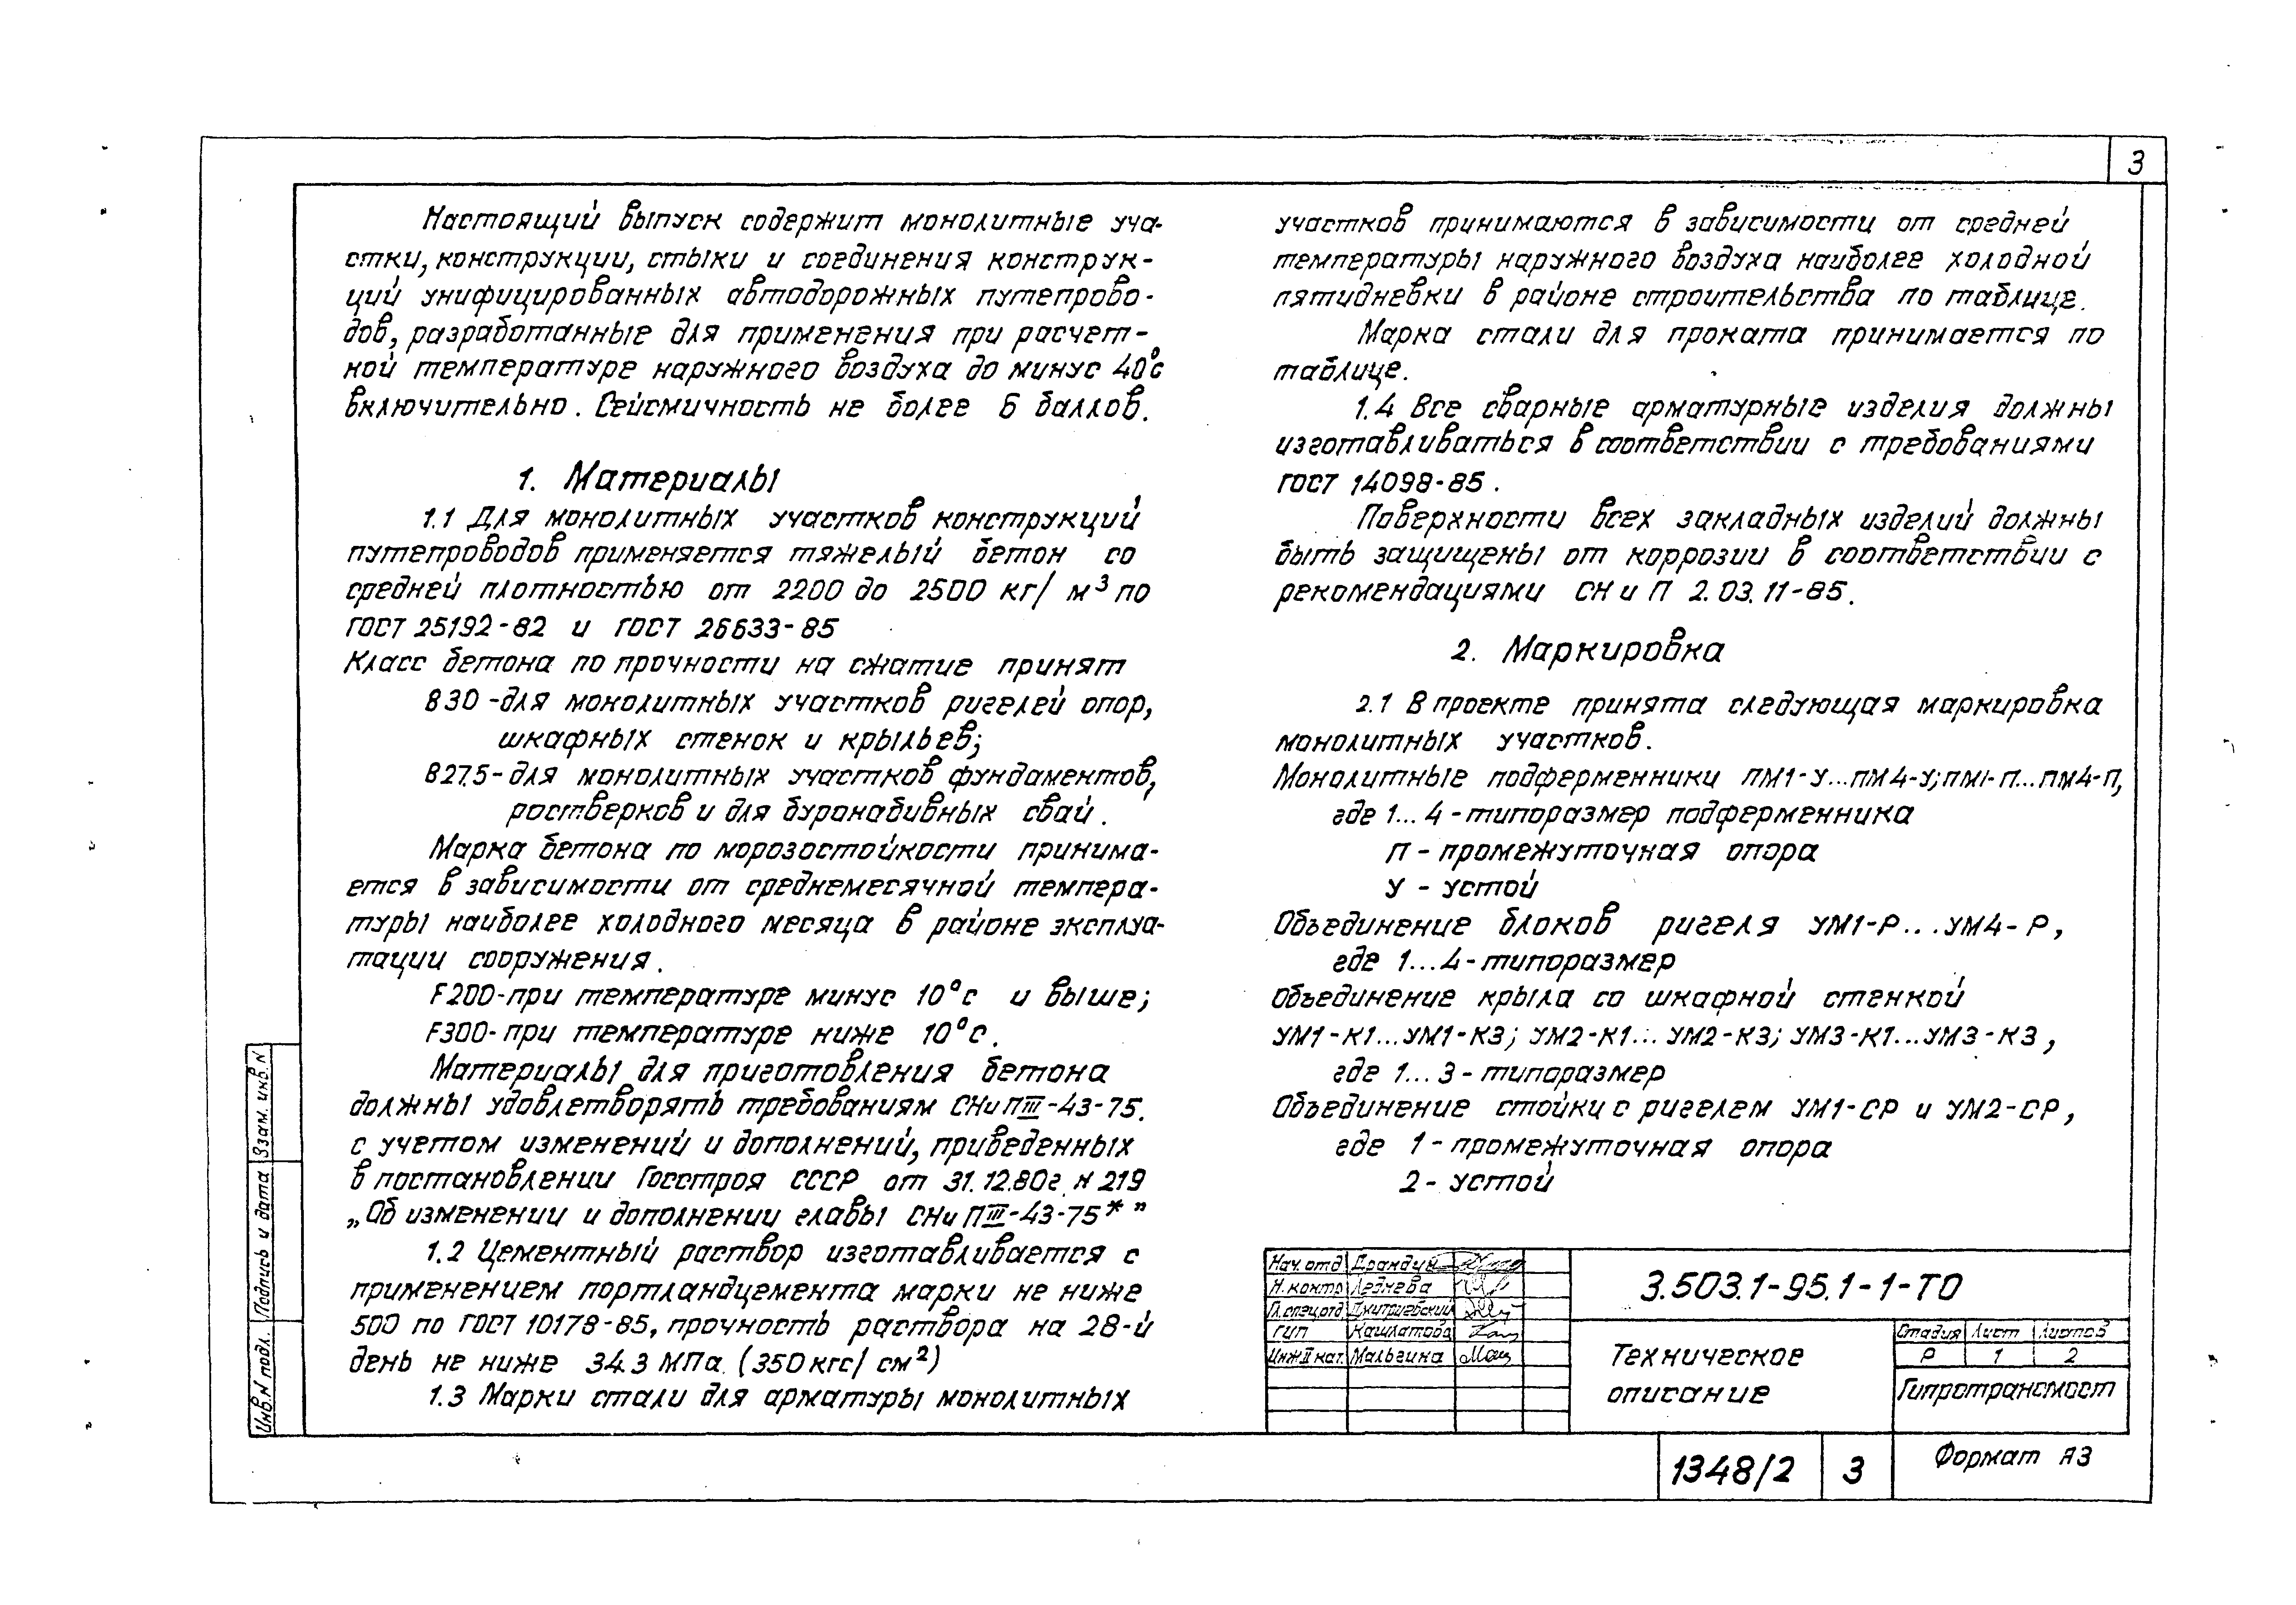 3
Настоящий выпуск содержит монолитные уча-
стки, конструкции, стыки и соединения конструк-
ций унифицированных автодорожных путепрово-
дов, разработанные для применения при расчет-
ной температуре наружного воздуха до минус 40°с
включительно. Сейсмичность не более 6 баллов.
1. Материалы
1.1 Для монолитных участков конструкций
путепроводов применяется тяжелый бетон со
средней плотностью от 2200 до 2500 кг/м³ по
ГОСТ 25192-82 и ГОСТ 26633-85
Класс бетона по прочности на сжатие принят
В30 - для монолитных участков ригелей опор,
шкафных стенок и крыльев;
В27.5 - для монолитных участков фундаментов,
ростверков и для буронабивных свай.
Марка бетона по морозостойкости принима-
ется в зависимости от среднемесячной темпера-
туры наиболее холодного месяца в районе эксплуа-
тации сооружения.
F200-при температуре минус 10°с и выше;
F300-при температуре ниже 10°с.
Материалы для приготовления бетона
должны удовлетворять требованиям СНиП III-43-75.
с учетом изменений и дополнений, приведенных
в постановлении Госстроя СССР от 31.12.80г. N 219
„Об изменении и дополнении главы СНиП III-43-75*"
1.2 Цементный раствор изготавливается с
применением портландцемента марки не ниже
500 по ГОСТ 10178-85, прочность раствора на 28-й
день не ниже 34.3 МПа. (350 кгс/см²)
1.3 Марки стали для арматуры монолитных
участков принимаются в зависимости от средней
температуры наружного воздуха наиболее холодной
пятидневки в районе строительства по таблице.
Марка стали для проката принимается по
таблице.
1.4 Все сварные арматурные изделия должны
изготавливаться в соответствии с требованиями
ГОСТ 14098-85.
Поверхности всех закладных изделий должны
быть защищены от коррозии в соответствии с
рекомендациями СНиП 2.03.11-85.
2. Маркировка
2.1 В проекте принята следующая маркировка
монолитных участков.
Монолитные подферменники ПМ1-У...ПМ4-У; ПМ1-П...ПМ4-П,
где 1...4 - типоразмер подферменника
П - промежуточная опора
У - устой
Объединение блоков ригеля УМ1-Р...УМ4-Р,
где 1...4 - типоразмер
Объединение крыла со шкафной стенкой
УМ1-К1...УМ1-К3; УМ2-К1...УМ2-К3; УМ3-К1...УМ3-К3,
где 1...3 - типоразмер
Объединение стойки с ригелем УМ1-СР и УМ2-СР,
где 1 - промежуточная опора
2 - устой
Нач.отд
Н.контр Леднева
Гл.спец.отд Дмитриевский
ГИП
Инж II кат. Мальгина
3.503.1-95.1-1-ТО
Техническое
описание
Стадия Лист Листов
Р 1 2
Гипротрансмост
Инв.N подл. Подпись и дата Взам. инв. N
1348/2 3 Формат А3